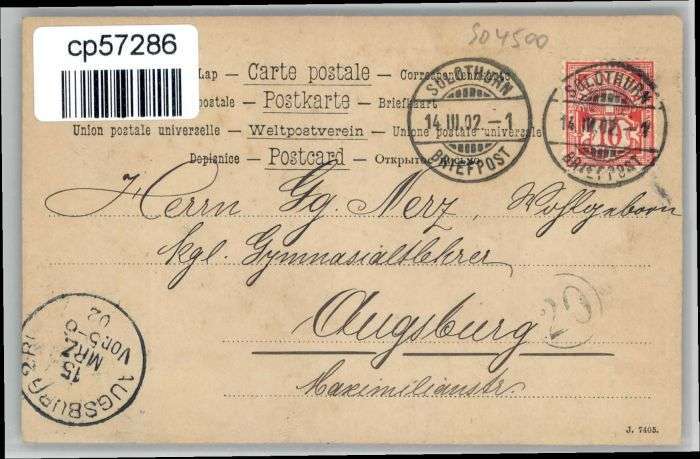 cp57286
SO 4500
Lap — Carte postale — Correspondenzkarte
postale — Postkarte — Briefkaart
Union postale universelle — Weltpostverein — Unione postale universale
Dopisnice — Postcard — Открытое письмо
SOLOTHURN
14.III.02.–1
BRIEFPOST
SOLOTHURN
14.III.02.–1
BRIEFPOST
10
Herrn Gg. Merz, Wohlgeborn
kgl. Gymnasiallehrer
Augsburg
Maximilianstr.
20
AUGSBURG 2
15
MRZ
Vor. 5-6
02
J. 7405.